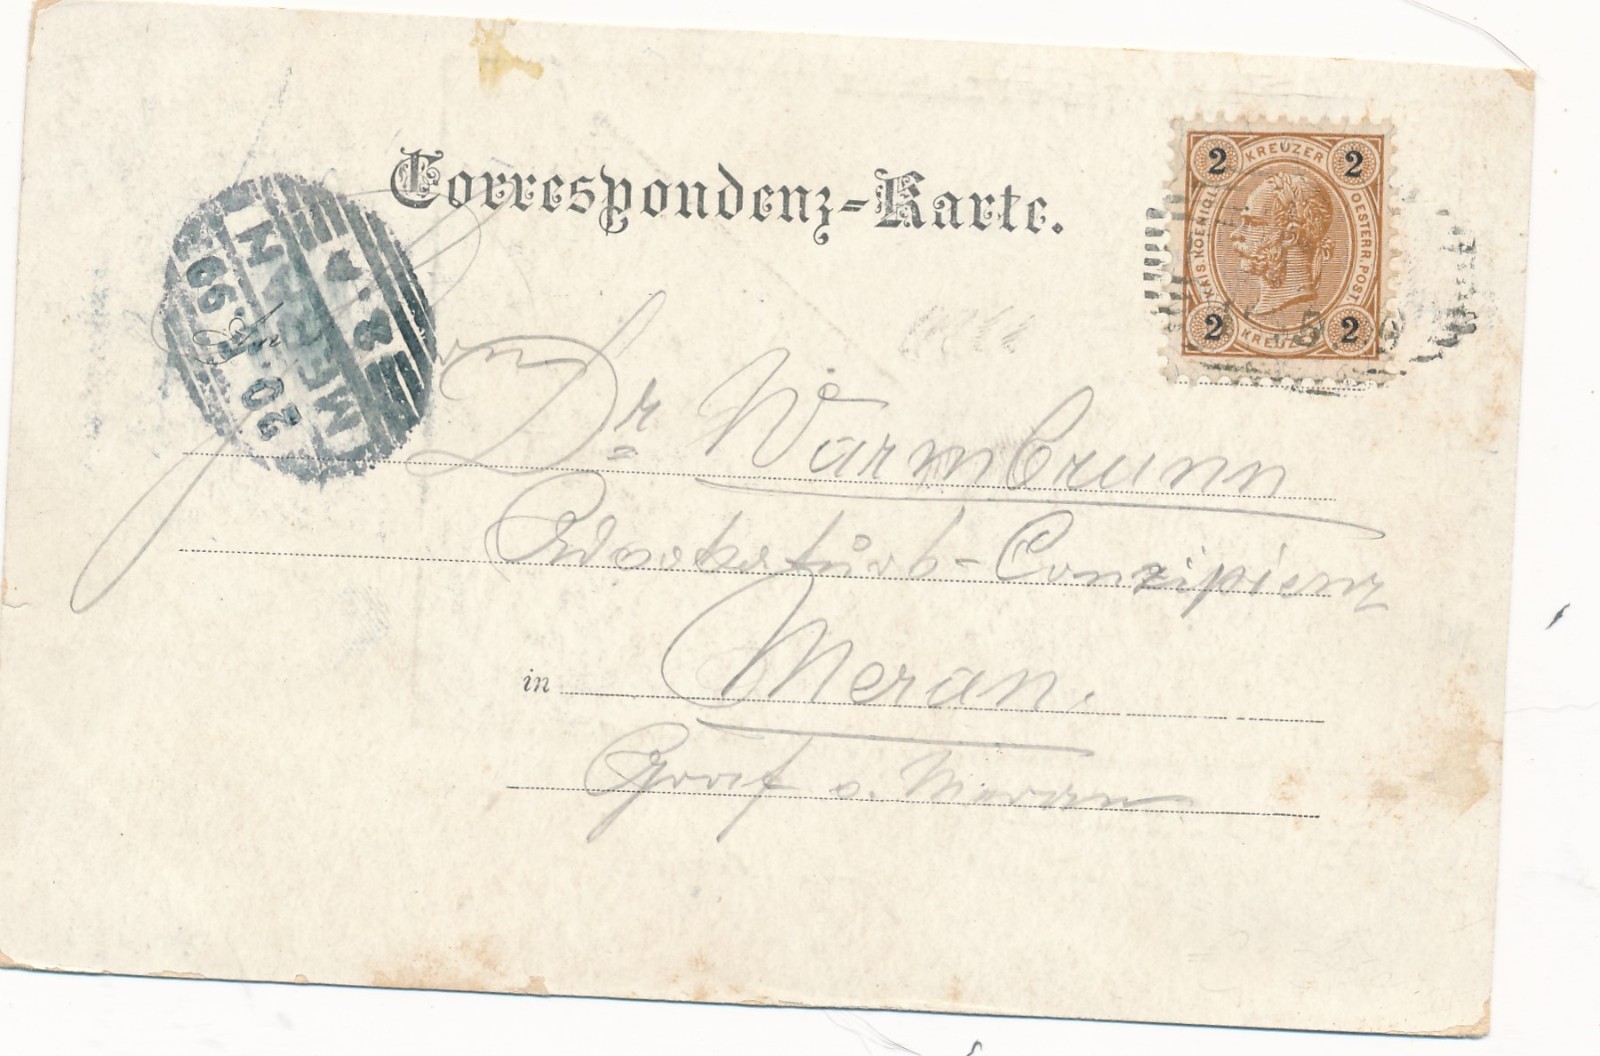 Correspondenz-Karte.
2 KREUZER 2
KAIS. KOENIGL. OESTERR. POST.
2 KREUZER 2
MERAN
20. 99
8.
An
Dr Warmbrunn
Advokaturs-Conzipient
in Meran.
Graf v. Meran